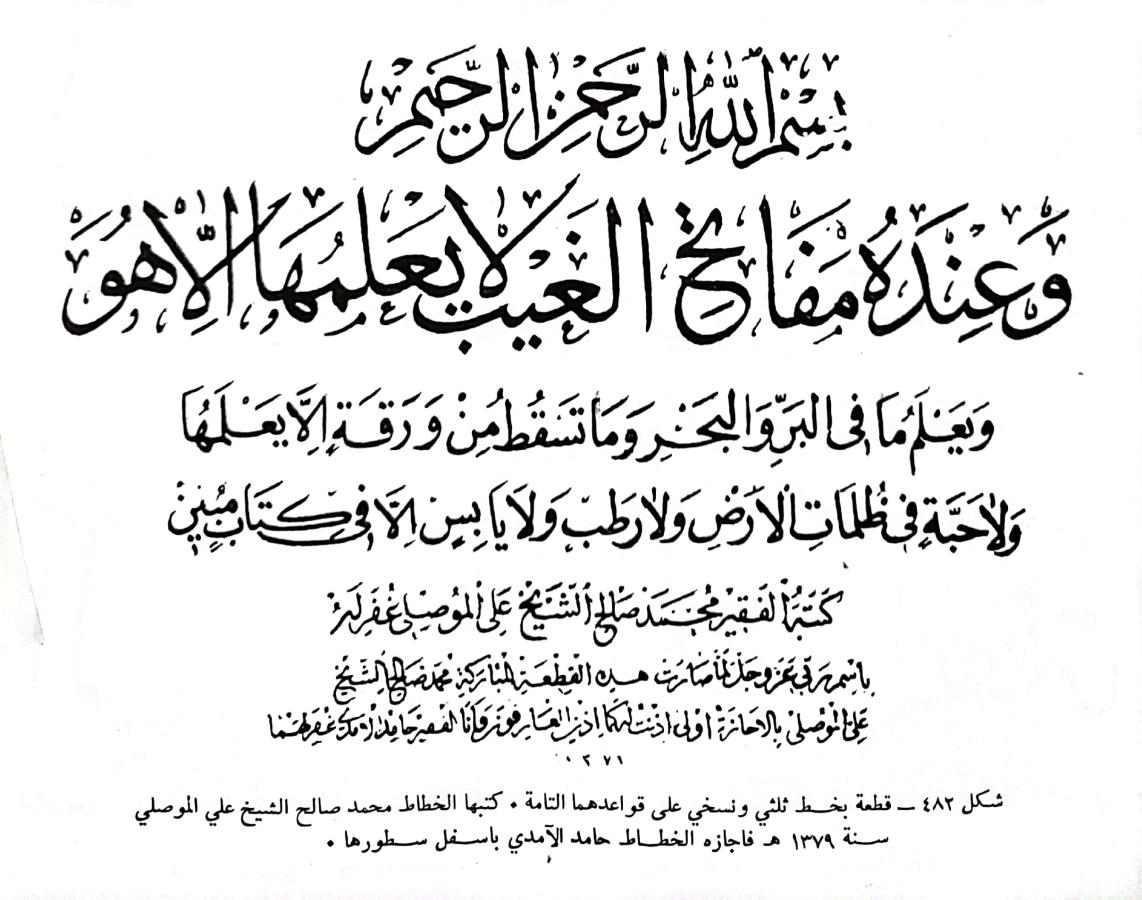 بِسْمِ اللهِ الرَّحْمٰنِ الرَّحِيمِ
وَعِنْدَهُ مَفَاتِحُ الْغَيْبِ لَا يَعْلَمُهَا إِلَّا هُوَ
وَيَعْلَمُ مَا فِي الْبَرِّ وَالْبَحْرِ وَمَا تَسْقُطُ مِنْ وَرَقَةٍ إِلَّا يَعْلَمُهَا
وَلَا حَبَّةٍ فِي ظُلُمَاتِ الْأَرْضِ وَلَا رَطْبٍ وَلَا يَابِسٍ إِلَّا فِي كِتَابٍ مُبِينٍ
كَتَبَهُ الْفَقِيرُ مُحَمَّد صَالِح الشَّيْخ عَلِي الْمُوصِلِي غُفِرَ لَهُ
بِاسْمِ رَبِّي عَزَّ وَجَلَّ لَمَّا صَارَتْ هَذِهِ الْقِطْعَةُ الْمُبَارَكَةُ مُحَمَّد صَالِح الشَّيْخ
عَلِي الْمُوصِلِي بِالْإِجَازَةِ أَوْلَى أَذِنْتُ وَأَنَا الْفَقِيرُ حَامِد الْآمِدِي غُفِرَ لَهُمَا
شكل ٤٨٢ ــ قطعة بخط ثلثي ونسخي على قواعدهما التامة ٠ كتبها الخطاط محمد صالح الشيخ علي الموصلي
سنة ١٣٧٩ هـ فاجازه الخطاط حامد الآمدي باسفل سطورها ٠